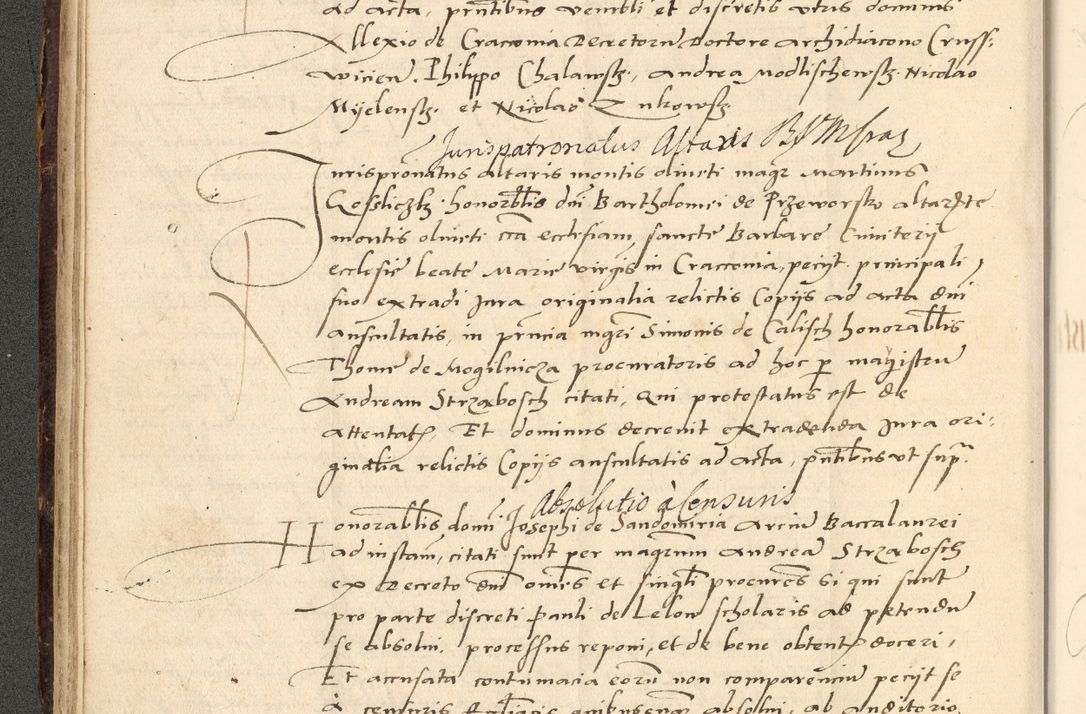 ad acta, pntibus venibli et discretis viris dominis
Allexio de Cracovia Decretoru Doctore Archidiacono Cruss-
wicien, Philippo Chalawsk, Andrea Modlischewsk, Nicolao
Myelensk et Nicolao Zukowsk
Jurispatronatus Altaris
Jurispronatus altaris montis oliveti magr Martinus
Gosliczk honorablis dni Bartholomei de Przeworsko altariste
montis oliveti cca ecclesiam sancte Barbare Cimiterii
ecclesie beate Marie virgis in Cracovia, peciit principali
suo extradi Jura originalia relictis Copiis ad acta dni
auscultatis, in pncia mgri Simonis de Calisch honorablis
Thome de Mogilnicza procuratoris ad hoc p magistru
Andream Strzabosch citati, Qui protestatus est de
Attentat, Et dominus decrevit extradenda Jura ori-
ginalia relictis Copiis auscultatis ad acta, pntibus ut supra
Absolutio a Censuris
Honorablis domi Josephi de Sandomiria Arciu Baccalaurei
ad instam, citati sunt per magrum Andrea Strzabosch
ex Decreto dni omnes et singli procures si qui sunt
pro parte discreti Pauli de Lelow scholaris ad petendu
se absolvi, processus reponi, et de bene obtent doceri,
Et accusata contumacia eoru non comparenciu peciit se
A censuris Ecclicis quibuscunq absolvi, ab auditorio